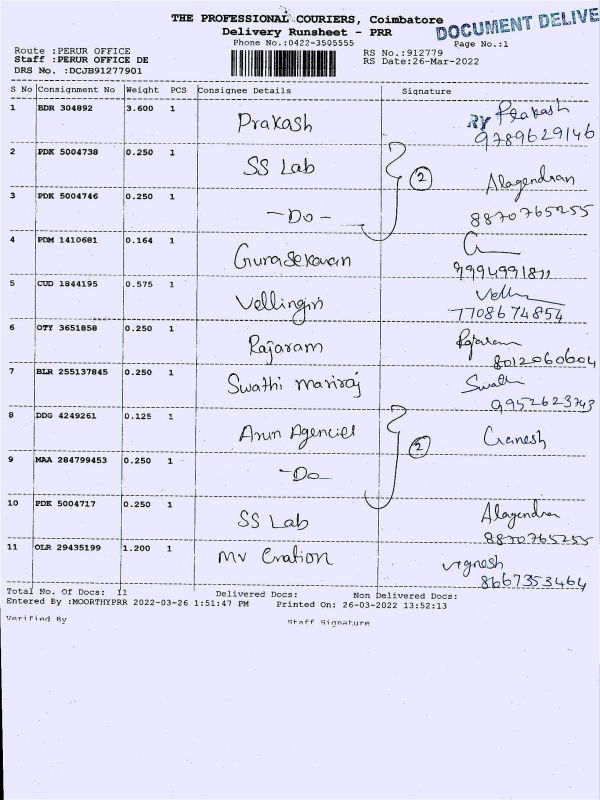 THE PROFESSIONAL COURIERS, Coimbatore
DOCUMENT DELIVE
Delivery Runsheet - PRR
Phone No.:0422-3505555
Page No.:1
Route :PERUR OFFICE
RS No.:912779
Staff :PERUR OFFICE DE
RS Date:26-Mar-2022
DRS No. :DCJB91277901
S No Consignment No Weight PCS Consignee Details Signature
1 BDR 304892 3.600 1 Prakash RY Prakash
9789629146
2 PDK 5004738 0.250 1 SS Lab 2 Alagendran
3 PDK 5004746 0.250 1 -Do- 8870765255
4 PDM 1410681 0.164 1 Gunasekaran
9994991811
5 CUD 1844195 0.575 1 Vellingiri
7708674854
6 OTY 3651858 0.250 1 Rajaram Rajaram
8012060604
7 BLR 255137845 0.250 1 Swathi mariraj Swathi
9952623743
8 DDG 4249261 0.125 1 Arun Agencies 2 Ganesh
9 MAA 284799453 0.250 1 -Do-
10 PDK 5004717 0.250 1 SS Lab Alagendran
8870765255
11 OLR 29435199 1.200 1 mv Cration vignesh
8667353464
Total No. Of Docs: 11 Delivered Docs: Non Delivered Docs:
Entered By :MOORTHYPRR 2022-03-26 1:51:47 PM Printed On: 26-03-2022 13:52:13
Verified By Staff Signature